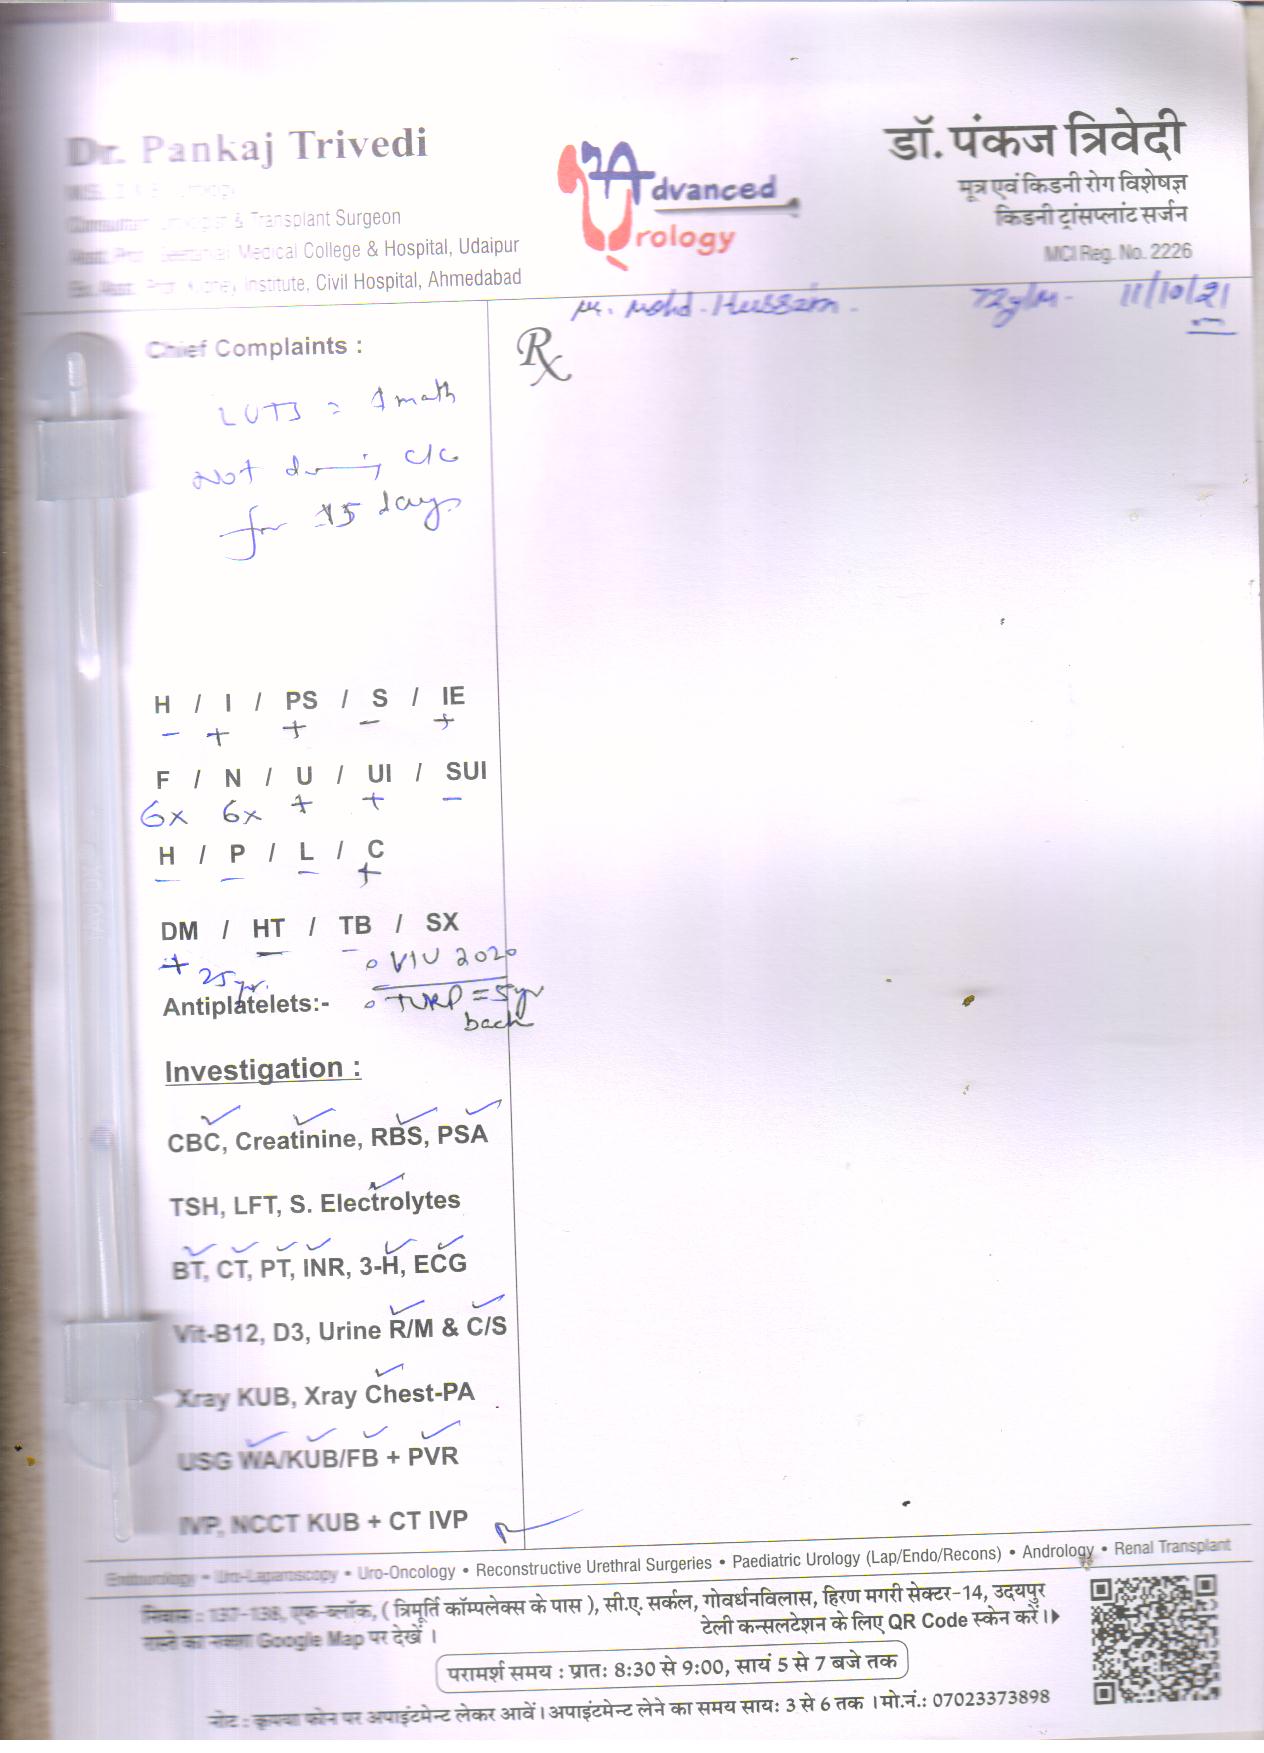 Dr. Pankaj Trivedi
Consultant & Transplant Surgeon
Medical College & Hospital, Udaipur
Institute, Civil Hospital, Ahmedabad
Advanced
Urology
डॉ. पंकज त्रिवेदी
मूत्र एवं किडनी रोग विशेषज्ञ
किडनी ट्रांसप्लांट सर्जन
MCI Reg. No. 2226
Mr. Mohd. Hussain. 72y/M- 11/10/21
Chief Complaints :
Rx
LUTS = 1 month
Not doing CIC
for 15 days
H / I / PS / S / IE
- + + - +
F / N / U / UI / SUI
6x 6x + + -
H / P / L / C
- - - +
DM / HT / TB / SX
+ 25yr. - - ∘ VIU 2020
Antiplatelets:- ∘ TURP = 5yr
back
Investigation :
CBC, Creatinine, RBS, PSA
TSH, LFT, S. Electrolytes
BT, CT, PT, INR, 3-H, ECG
Vit-B12, D3, Urine R/M & C/S
Xray KUB, Xray Chest-PA
USG WA/KUB/FB + PVR
IVP, NCCT KUB + CT IVP
Endourology • Uro-Laparoscopy • Uro-Oncology • Reconstructive Urethral Surgeries • Paediatric Urology (Lap/Endo/Recons) • Andrology • Renal Transplant
निवास : 137-138, एफ-ब्लॉक, ( त्रिमूर्ति कॉम्पलेक्स के पास ), सी.ए. सर्कल, गोवर्धनविलास, हिरण मगरी सेक्टर-14, उदयपुर
रास्ते का नक्शा Google Map पर देखें । टेली कन्सलटेशन के लिए QR Code स्केन करें।
परामर्श समय : प्रातः 8:30 से 9:00, सायं 5 से 7 बजे तक
नोट : कृपया फोन पर अपाइंटमेन्ट लेकर आवें। अपाइंटमेन्ट लेने का समय सायः 3 से 6 तक । मो.नं.: 07023373898